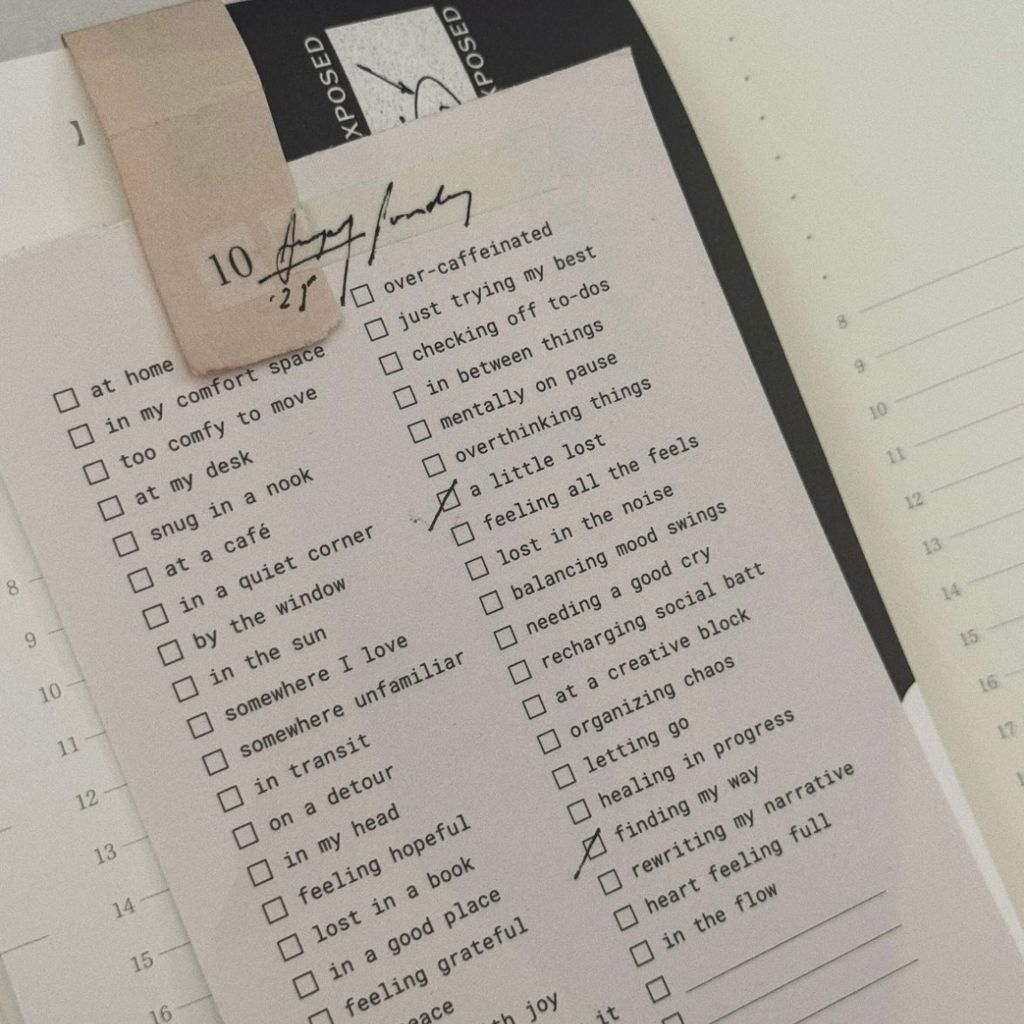 EXPOSED
EXPOSED
10 August Sunday
'25
at home
in my comfort space
too comfy to move
at my desk
snug in a nook
at a café
in a quiet corner
by the window
in the sun
somewhere I love
somewhere unfamiliar
in transit
on a detour
in my head
feeling hopeful
lost in a book
in a good place
feeling grateful
over-caffeinated
just trying my best
checking off to-dos
in between things
mentally on pause
overthinking things
a little lost
feeling all the feels
lost in the noise
balancing mood swings
needing a good cry
recharging social batt
at a creative block
organizing chaos
letting go
healing in progress
finding my way
rewriting my narrative
heart feeling full
in the flow
joy
it
8
9
10
11
12
13
14
15
16
8
9
10
11
12
13
14
15
16
17